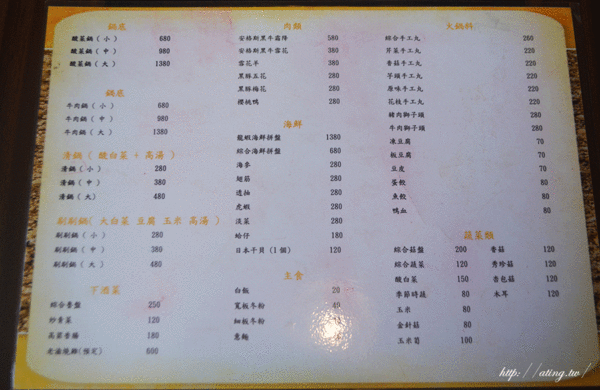 鍋底
酸菜鍋 ( 小 ) 680
酸菜鍋 ( 中 ) 980
酸菜鍋 ( 大 ) 1380
鍋底
牛肉鍋 ( 小 ) 680
牛肉鍋 ( 中 ) 980
牛肉鍋 ( 大 ) 1380
清鍋 ( 酸白菜 + 高湯 )
清鍋 ( 小 ) 280
清鍋 ( 中 ) 380
清鍋 ( 大) 480
涮涮鍋( 大白菜 豆腐 玉米 高湯 )
涮涮鍋 ( 小 ) 280
涮涮鍋 ( 中 ) 380
涮涮鍋 ( 大 ) 480
下酒菜
綜合滷盤 250
炒青菜 120
180
600
肉類
安格斯黑牛霜降 580
安格斯黑牛雪花 380
雪花羊 280
黑豚五花 280
黑豚梅花 280
櫻桃鴨 280
海鮮
龍蝦海鮮拼盤 1380
綜合海鮮拼盤 680
海參 280
翅筋 280
透抽 280
虎蝦 280
淡菜 280
蛤仔 180
日本干貝 (1個) 120
主食
白飯 20
寬板冬粉 40
細板冬粉
意麵
火鍋料
綜合手工丸 260
芹菜手工丸 220
香菇手工丸 220
芋頭手工丸 220
原味手工丸 220
花枝手工丸 220
豬肉獅子頭 280
牛肉獅子頭 280
凍豆腐 70
板豆腐 70
豆皮 70
蛋餃 80
魚餃 80
鴨血 80
蔬菜類
綜合菇盤 200
綜合蔬菜 120
酸白菜 150
季節時蔬 80
玉米 80
金針菇 80
玉米筍 100
香菇 120
秀珍菇 120
杏包菇 120
木耳 120
http://ating.tw/